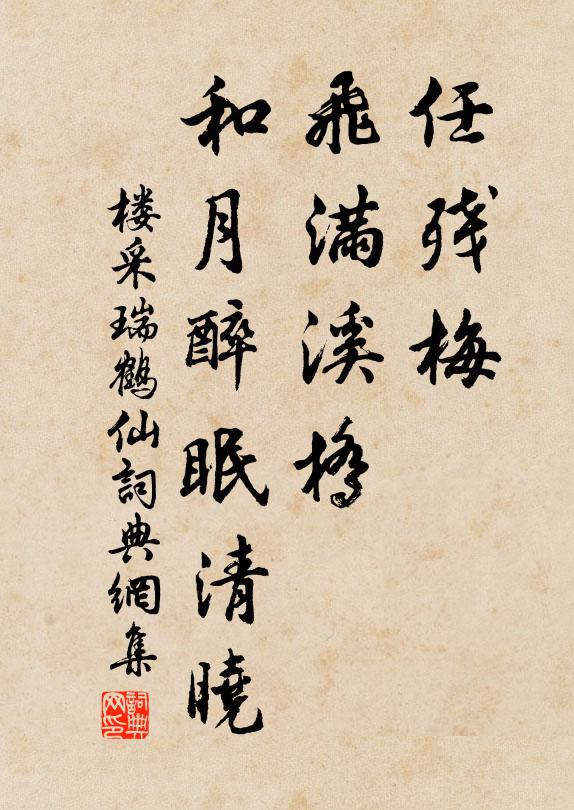 任残梅
飛满溪橋
和月醉眠清曉
楼采瑞鶴仙詞典網集
詞典网印